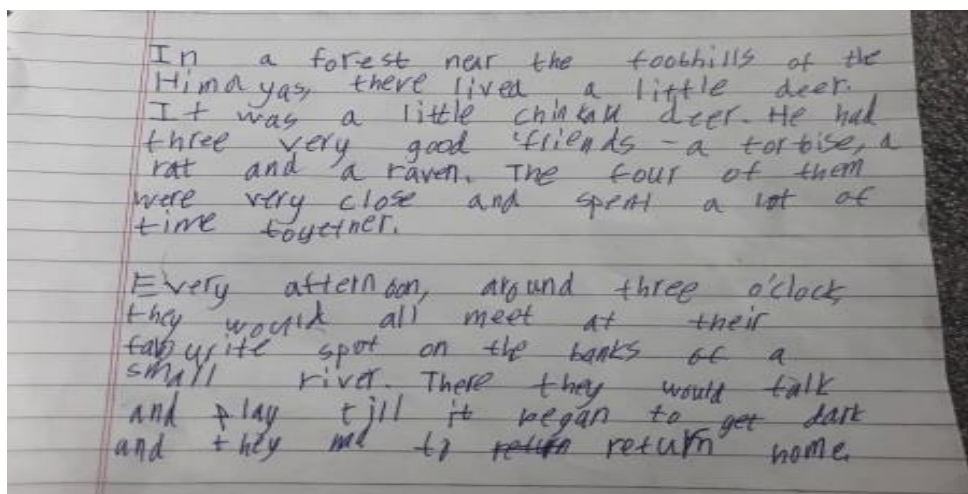 In a forest near the foothills of the
Himalyas, there lived a little deer.
It was a little chinkara deer. He had
three very good friends - a tortise, a
rat and a raven. The four of them
were very close and spent a lot of
time together.
Every afternoon, around three o'clock,
they would all meet at their
favourite spot on the banks of a
small river. There they would talk
and play till it began to get dark
and they to return home.